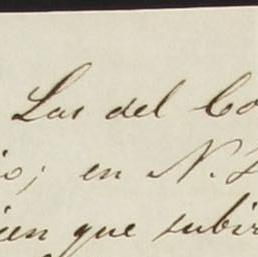 Las del Co
io; en N.
ien que subir